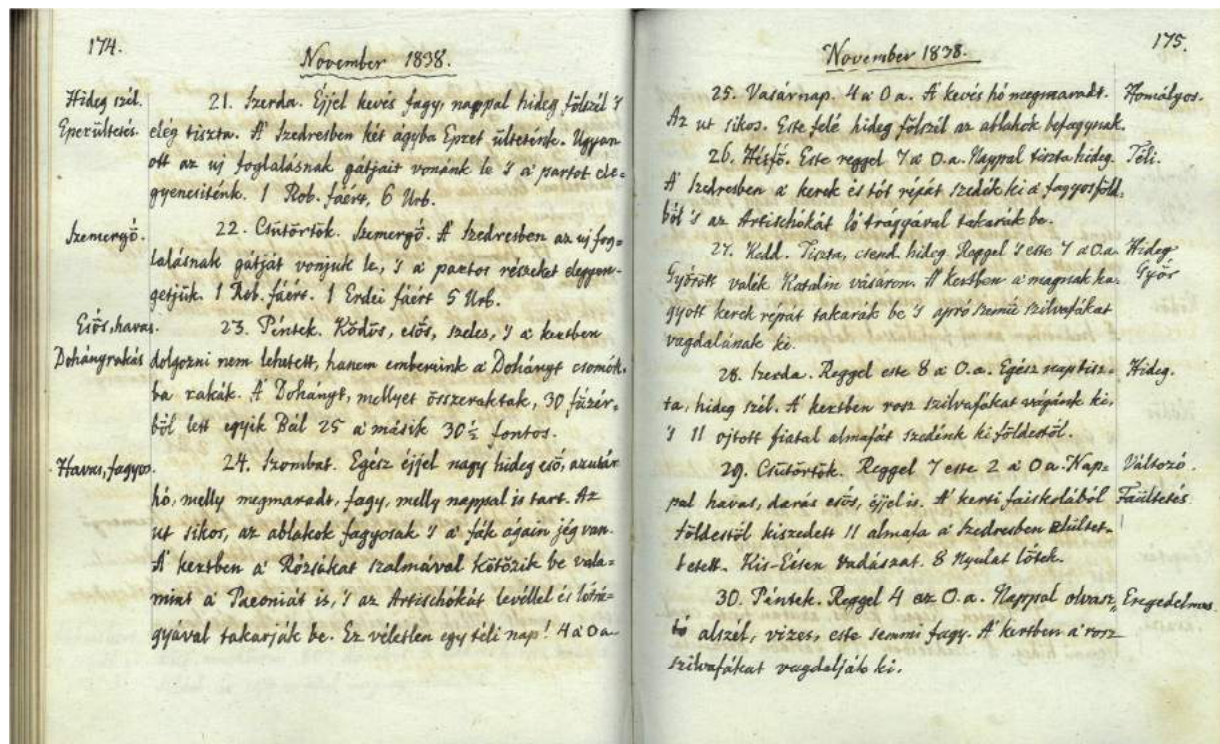 174.
November 1838.
Hideg szél.
Eperültetés.
21. Szerda. Éjjel kevés fagy, nappal hideg fölszél 's
elég tiszta. A' Szedresben két ágyba Epret ülteténk. Ugyan
ott az uj foglalásnak gátjait vonánk le 's a' partot ele=
gyensiténk. 1 Rob. fáért, 6 Urb.
Szemergő.
22. Csütörtök. Szemergő. A' Szedresben az uj fog=
lalásnak gátját vonjuk le, 's a' partos részeket elegyen=
getjük. 1 Rob. fáért. 1 Erdei fáért 5 Urb.
Esős, havas.
Dohányrakás
23. Péntek. Ködös, esős, szeles, 's a' kertben
dolgozni nem lehetett, hanem embereink a' Dohányt csomók=
ba rakák. A' Dohányt, mellyet összeraktak, 30 füzér=
ből lett egyik Bál 25 a' másik 30½ fontos.
Havas, fagyos.
24. Szombat. Egész éjjel nagy hideg eső, azután
hó, melly megmaradt, fagy, melly nappal is tart. Az
ut sikos, az ablakok fagyosak 's a' fák again jég van.
A' kertben a' Rózsákat szalmával kötözik be vala=
mint a' Paeoniát is, 's az Artischókát levéllel és lótrá=
gyával takarják be. Ez véletlen egy téli nap! 4 a' 0 a.
175.
November 1838.
25. Vasárnap. 4 a' 0 a. A' kevés hó megmaradt.
Az ut sikos. Este felé hideg fölszél az ablakok befagynak.
Homályos.
26. Hétfő. Este reggel 7 a' 0. a. Nappal tiszta hideg.
A' Szedresben a' kerek és tót répát szedék ki a' fagyos föld=
ből 's az Artischókát ló trágyával takarák be.
Téli.
27. Kedd. Tiszta, csend. hideg. Reggel 's este 7 a' 0. a.
Győrött valék Katalin vásáron. A' kertben a' magnak ha=
gyott kerek répát takarák be 's apró szemü szilvafákat
vagdalának ki.
Hideg
Győr
28. Szerda. Reggel este 8 a' 0. a. Egész nap tisz=
ta, hideg szél. A' kertben rosz szilvafákat vágánk ki,
's 11 ojtott fiatal almafát szedénk ki földestöl.
Hideg.
29. Csütörtök. Reggel 7 este 2 a' 0 a. Nap=
pal havas, darás esős, éjjel is. A' kerti faiskolából
földestöl kiszedett 11 almafa a' Szedresben elültet=
tetett. Kis-Écsen vadászat. 8 Nyulat lőtek.
Változó.
Faültetés
30. Péntek. Reggel 4 az 0. a. Nappal olvasz=
tó alszél, vizes, este semmi fagy. A' kertben a' rosz
szilvafákat vagdalják ki.
Eregedelmes.